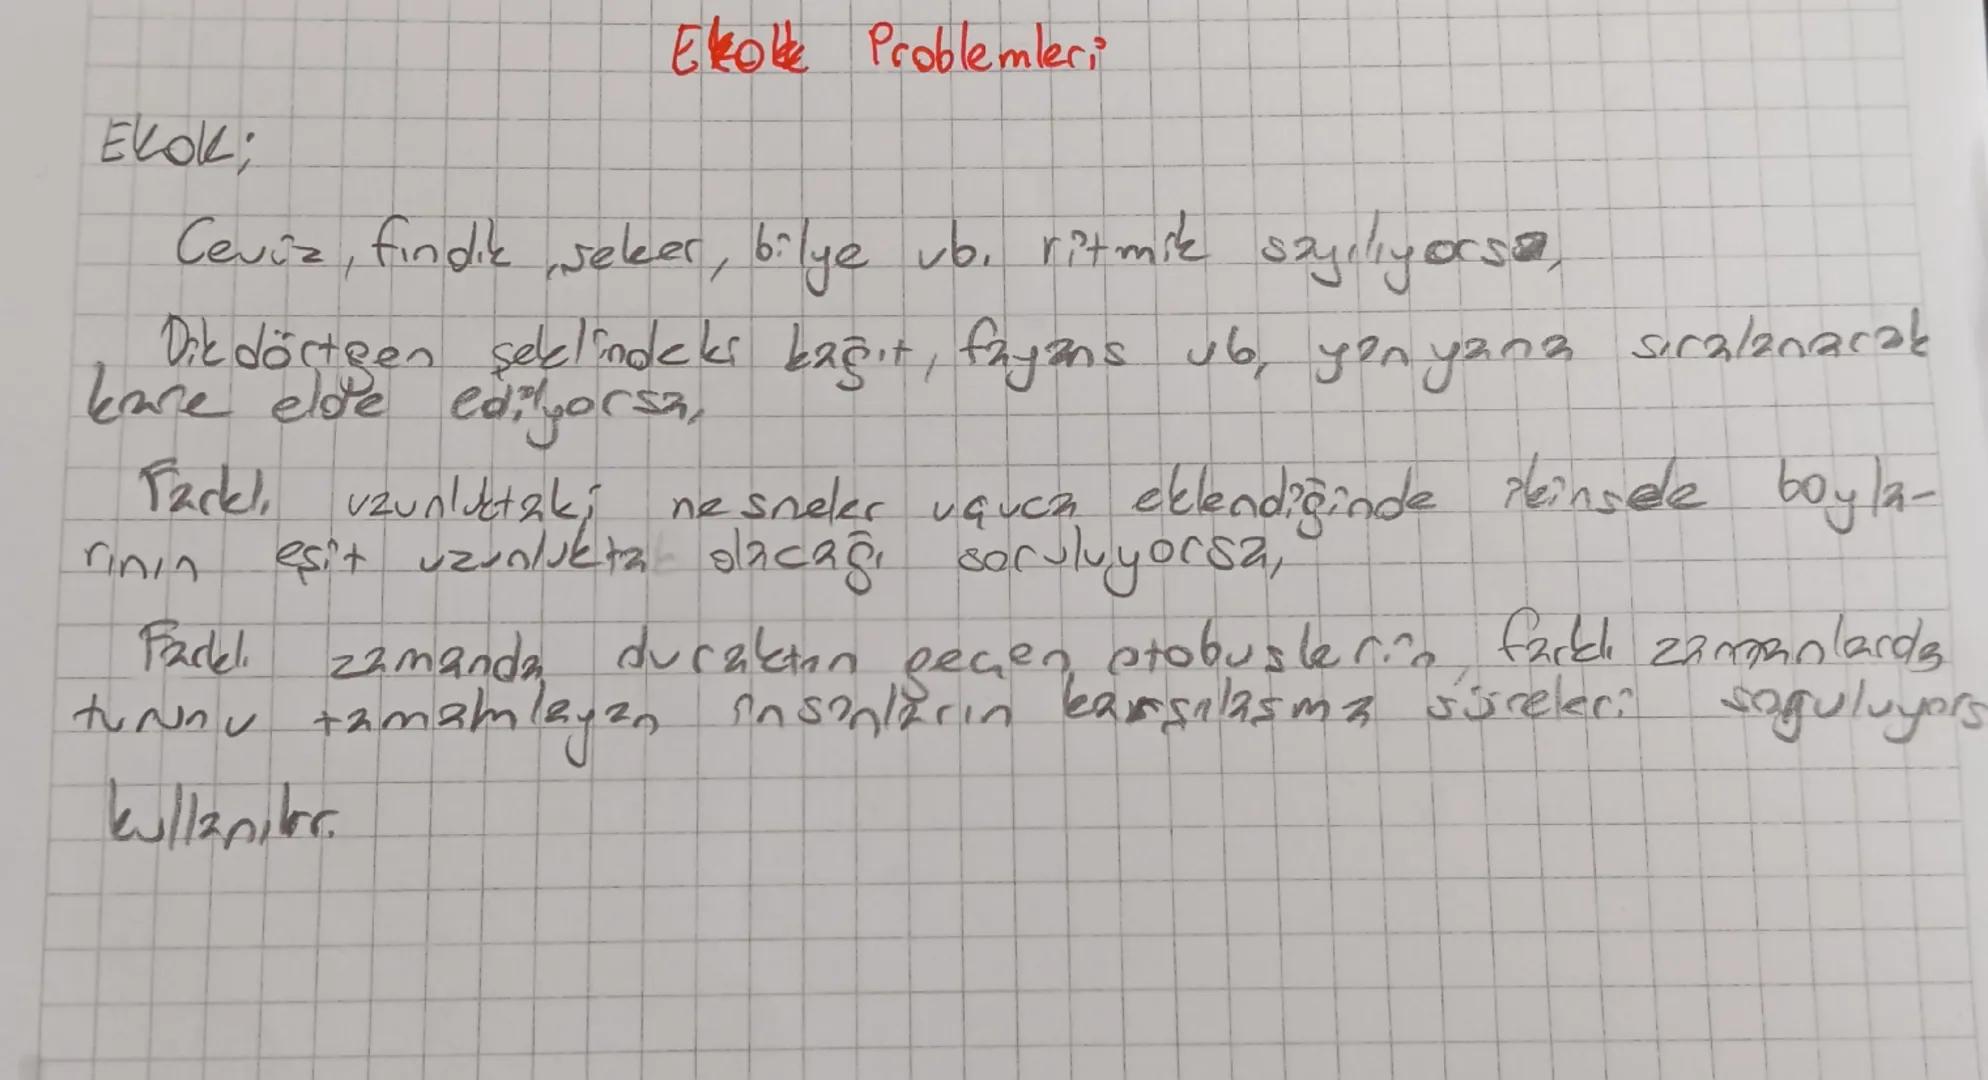 Ekok Problemleri
EKOK;
Ceviz, fındık, şeker, bilye vb. ritmik sayılıyorsa,
Dikdörtgen şeklindeki kağıt, fayans vb, yan yana sıralanarak
kare elde ediliyorsa,
Farklı uzunluktaki nesneler uç uca eklendiğinde boyla-
rının eşit uzunlukta olacağı soruluyorsa,
Farklı zamanda duraktan geçen otobüslerin, farklı zamanlarda
turunu tamamlayan insanların karşılaşma süreleri
kullanılır.